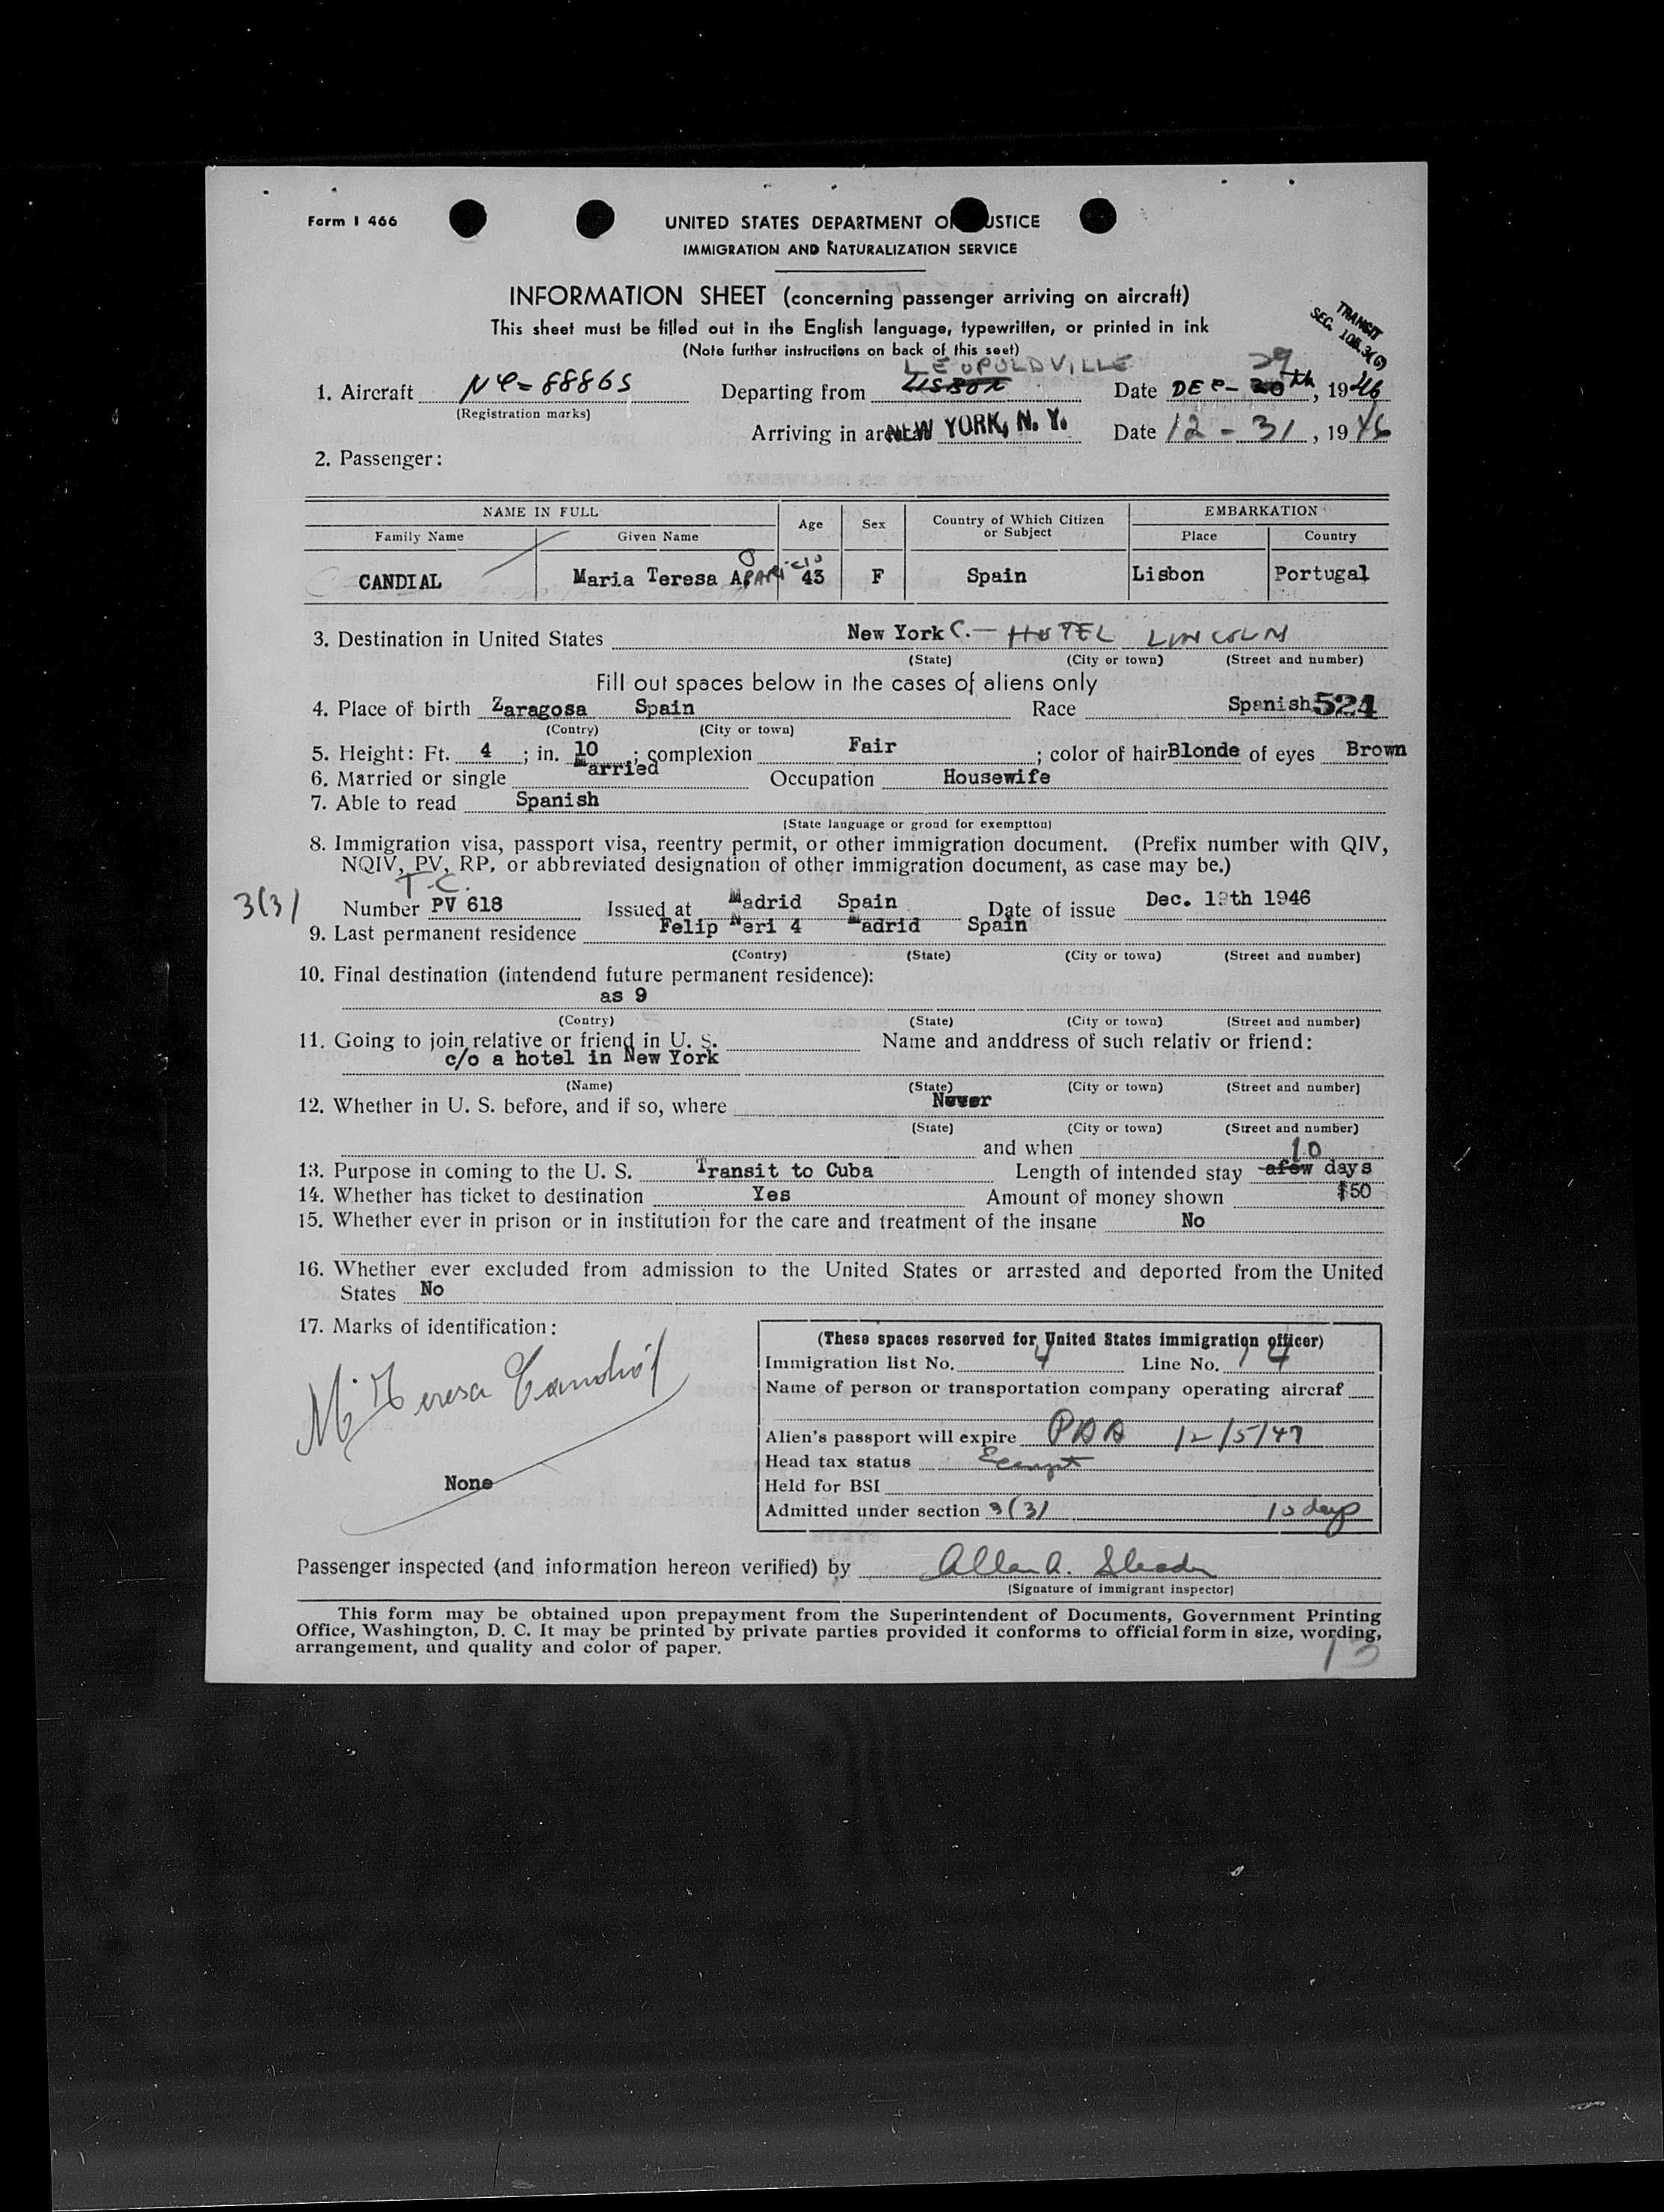 Form I 466
UNITED STATES DEPARTMENT OF JUSTICE
IMMIGRATION AND NATURALIZATION SERVICE
INFORMATION SHEET (concerning passenger arriving on aircraft)
This sheet must be filled out in the English language, typewritten, or printed in ink
(Note further instructions on back of this seet)
TRANSIT
SEC. 108.3(6)
LEOPOLDVILLE 29
1. Aircraft NC-88865 Departing from Lisbon Date DEC- 30th, 1946
(Registration marks)
Arriving in area NEW YORK, N. Y. Date 12-31, 1946
2. Passenger:
NAME IN FULL Age Sex Country of Which Citizen or Subject EMBARKATION
Family Name Given Name Place Country
CANDIAL Maria Teresa APARICIO 43 F Spain Lisbon Portugal
3. Destination in United States New York C.- HOTEL LINCOLN
(State) (City or town) (Street and number)
Fill out spaces below in the cases of aliens only
4. Place of birth Zaragosa Spain Race Spanish 524
(Contry) (City or town)
5. Height: Ft. 4 ; in. 10 ; complexion Fair ; color of hair Blonde of eyes Brown
6. Married or single Married Occupation Housewife
7. Able to read Spanish
(State language or grond for exemptton)
8. Immigration visa, passport visa, reentry permit, or other immigration document. (Prefix number with QIV,
NQIV, PV, RP, or abbreviated designation of other immigration document, as case may be.)
T.C.
3(3) Number PV 618 Issued at Madrid Spain Date of issue Dec. th 1946
9. Last permanent residence Felip Neri 4 Madrid Spain
(Contry) (State) (City or town) (Street and number)
10. Final destination (intendend future permanent residence):
as 9
(Contry) (State) (City or town) (Street and number)
11. Going to join relative or friend in U. S. Name and anddress of such relativ or friend:
c/o a hotel in New York
(Name) (State) (City or town) (Street and number)
12. Whether in U. S. before, and if so, where Never
(State) (City or town) (Street and number)
and when
13. Purpose in coming to the U. S. Transit to Cuba Length of intended stay afew 10 days
14. Whether has ticket to destination Yes Amount of money shown $50
15. Whether ever in prison or in institution for the care and treatment of the insane No
16. Whether ever excluded from admission to the United States or arrested and deported from the United
States No
17. Marks of identification:
M. Teresa Candial
None
(These spaces reserved for United States immigration officer)
Immigration list No. 4 Line No. 4
Name of person or transportation company operating aircraf
Alien's passport will expire PAA 12/5/47
Head tax status Exempt
Held for BSI
Admitted under section 3(3) 10 days
Passenger inspected (and information hereon verified) by Allan A.
(Signature of immigrant inspector)
This form may be obtained upon prepayment from the Superintendent of Documents, Government Printing
Office, Washington, D. C. It may be printed by private parties provided it conforms to official form in size, wording,
arrangement, and quality and color of paper.
13